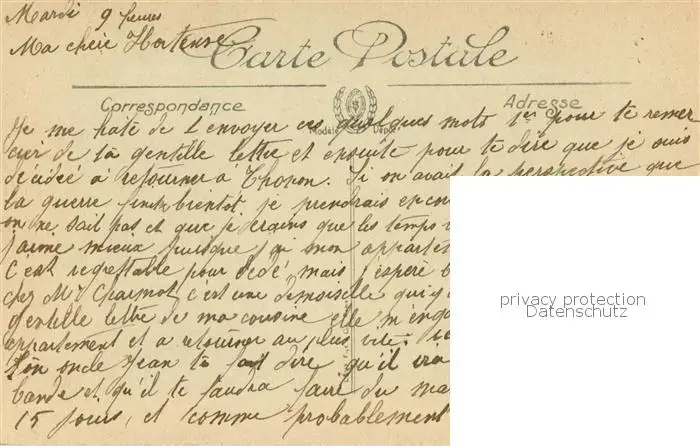 Mardi 9 heures
Ma chère Hortense
Carte Postale
Correspondance
Adresse
Je me hâte de t'envoyer ces quelques mots 1er pour te remer
cier de ta gentille lettre et ensuite pour te dire que je suis
décidée à retourner à Thonon. Si on avait la perspective que
la guerre finit bientôt je prendrais encon
on ne sait pas et que je crains que les temps
j'aime mieux puisque j'ai mon appartet
C'est regrettable pour dédé, mais j'espère b
chez Mr Charmot c'est une demoiselle qui y
gentille lettre de ma cousine elle m'enga
appartement et a retourner au plus vite.
Ton oncle Jean te fait dire qu'il ira
bande et qu'il te faudra faire du ma
15 jours, et comme probablement
privacy protection
Datenschutz